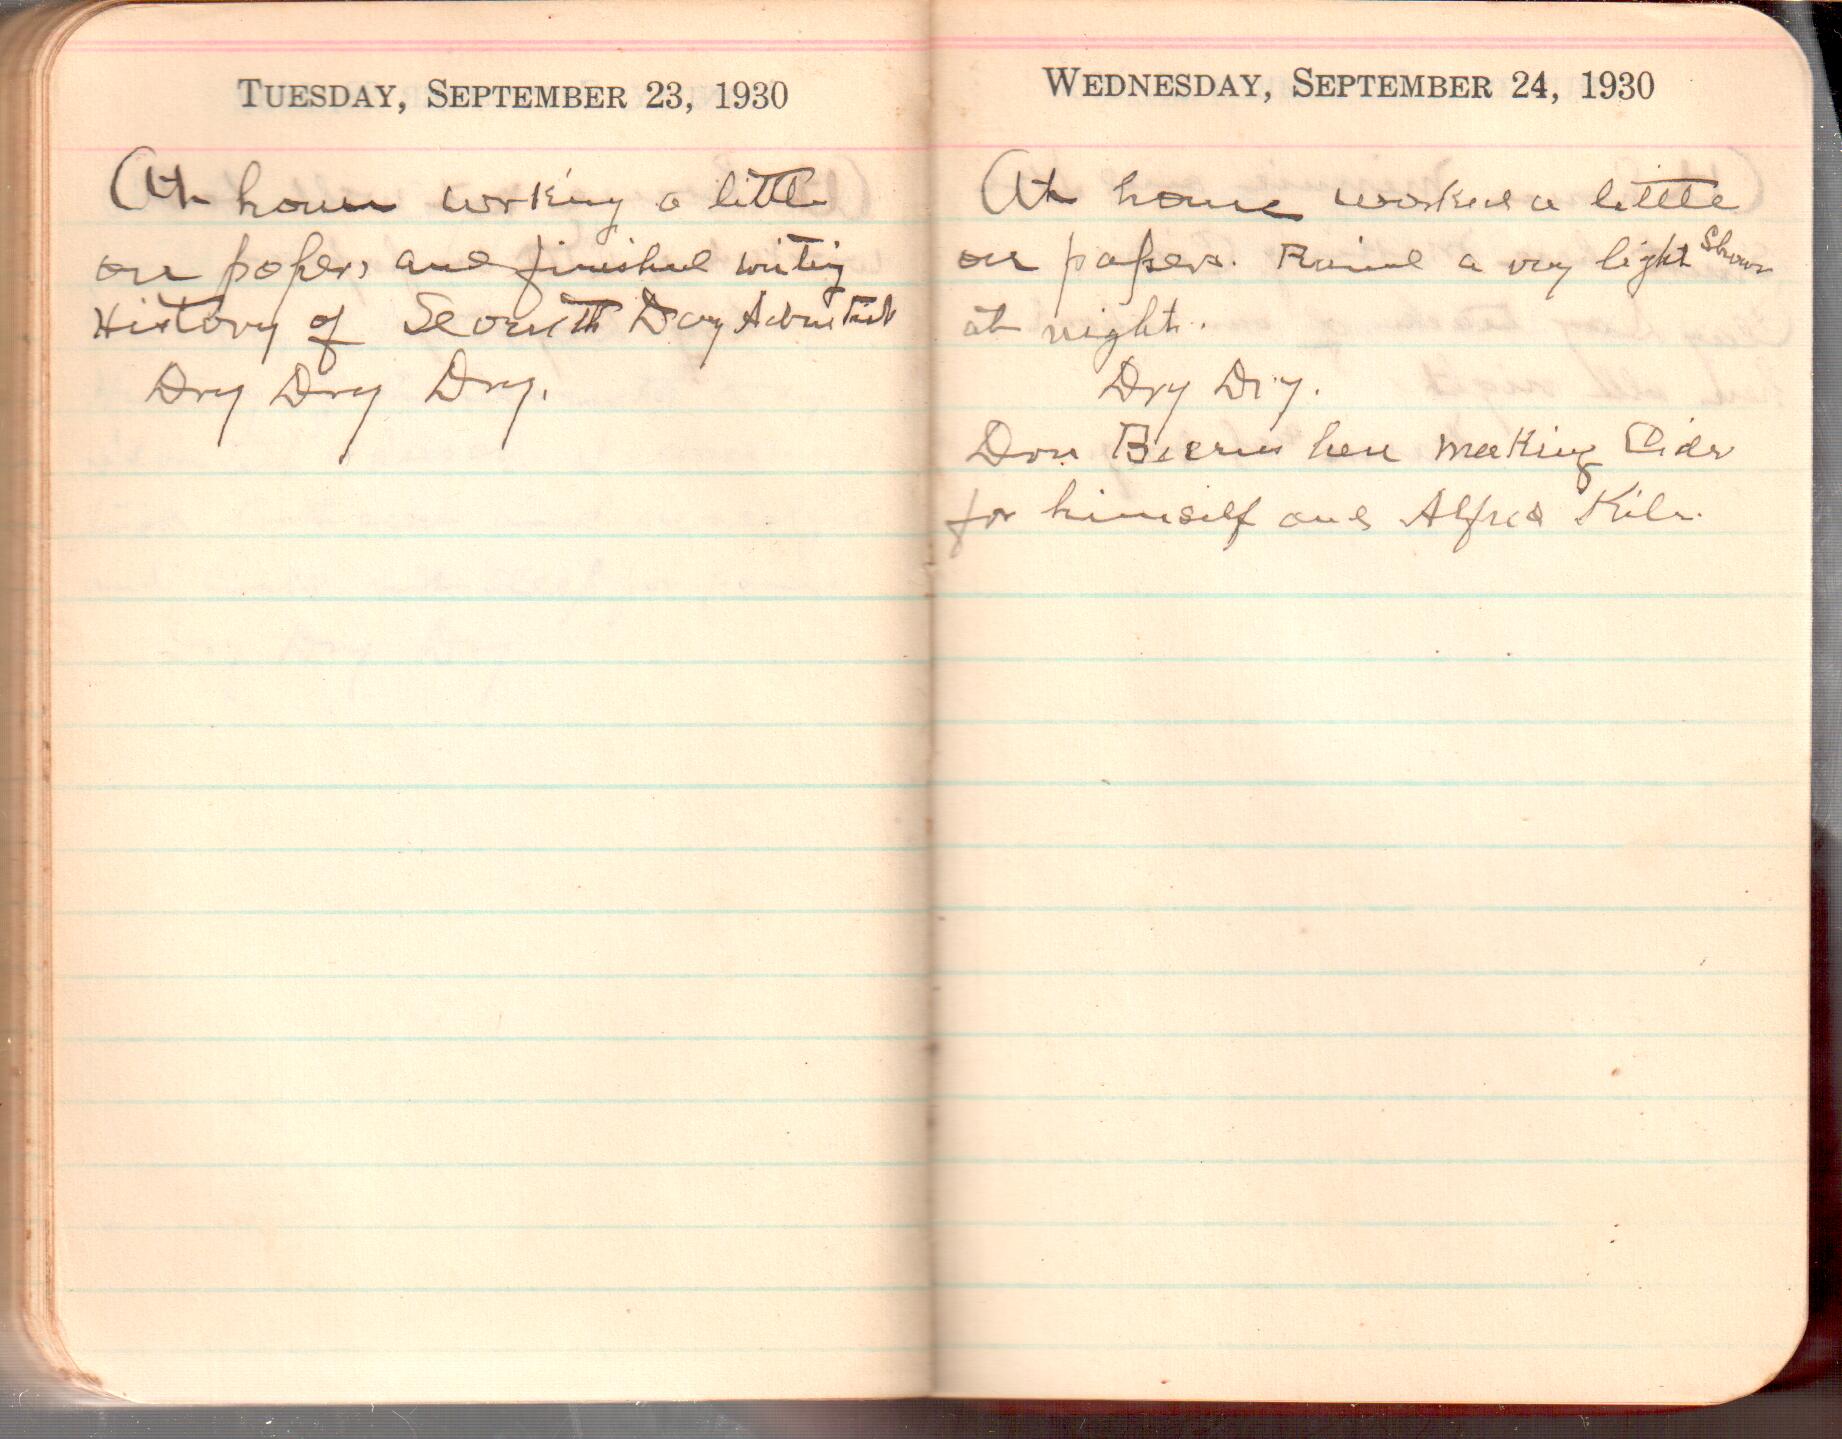 TUESDAY, SEPTEMBER 23, 1930
At home working a little
on papers and finished writing
History of Seventh Day Adventist
Dry Dry Dry.
WEDNESDAY, SEPTEMBER 24, 1930
At home worked a little
on papers. Rained a very light Shower
at night.
Dry Dry.
Don here making Cider
for himself and Alfred